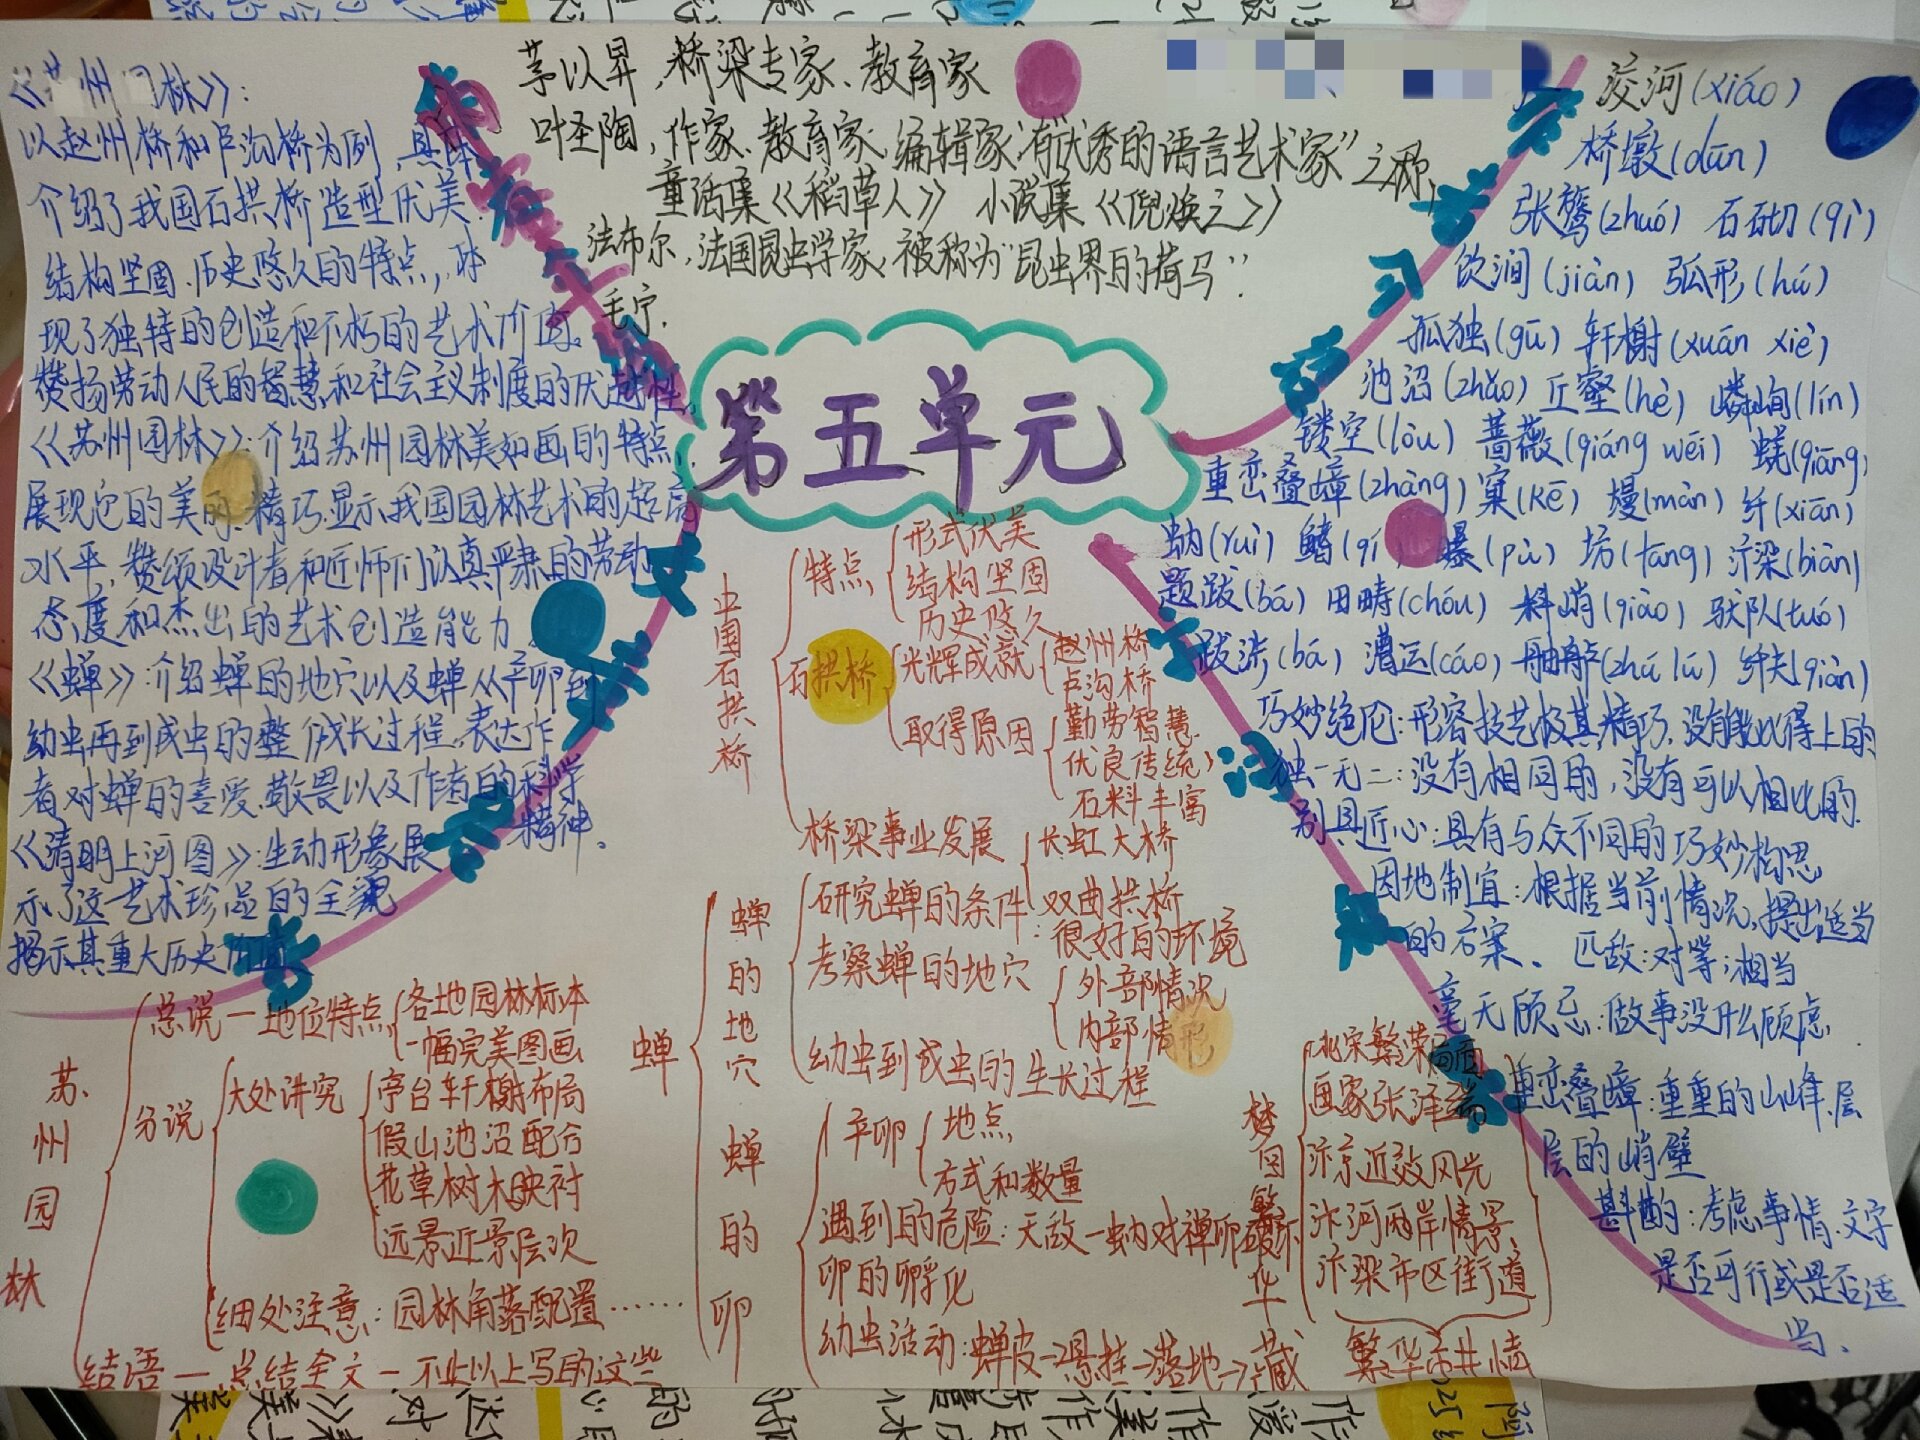 茅以昇，桥梁专家、教育家
叶圣陶，作家、教育家、编辑家，有"优秀的语言艺术家"之称，
童话集《稻草人》 小说集《倪焕之》
法布尔，法国昆虫学家，被称为"昆虫界的荷马".
毛宁.
第五单元
州园林》：
以赵州桥和卢沟桥为例，具体
介绍了我国石拱桥造型优美、
结构坚固、历史悠久的特点，体
现了独特的创造和不朽的艺术价值。
赞扬劳动人民的智慧和社会主义制度的优越性。
《苏州园林》：介绍苏州园林美如画的特点，
展现它的美丽、精巧，显示我国园林艺术的超高
水平，赞颂设计者和匠师们认真严肃的劳动
态度和杰出的艺术创造能力
《蝉》：介绍蝉的地穴以及蝉从产卵到
幼虫再到成虫的整个成长过程，表达作
者对蝉的喜爱、敬畏以及作者的科学
精神、
《清明上河图》：生动形象展
示了这一艺术珍品的全貌
揭示其重大历史价值
课文内容
洨河(xiáo)
桥墩(dūn)
张鷟(zhuó) 石砌(qì)
饮涧(jiàn) 弧形(hú)
孤独(gū) 轩榭(xuān xiè)
池沼(zhǎo) 丘壑(hè) 嶙峋(lín)
镂空(lòu) 蔷薇(qiáng wēi) 蜣(qiāng)
重峦叠嶂(zhàng) 窠(Kē) 嫚(màn) 纤(xiān)
蚋(ruì) 鳍(qí) 瀑(pù) 坊(fang) 汴梁(biàn)
题跋(bá) 田畴(chóu) 料峭(qiào) 驮队(tuó)
跋涉(bá) 漕运(cáo) 舳舻(zhú lú) 纤夫(qiàn)
巧妙绝伦：形容技艺极其精巧，没有能比得上的
独一无二：没有相同的，没有可以相比的.
别具匠心：具有与众不同的巧妙构思
因地制宜：根据当前情况，提出适当
的方案、 匹敌：对等；相当
毫无顾忌：做事没什么顾虑.
重峦叠嶂：重重的山峰、层
层的峭壁
斟酌：考虑事情、文字
是否可行或是否适
当、
中国石拱桥
特点
形式优美
结构坚固
历史悠久
石拱桥
光辉成就
赵州桥
卢沟桥
取得原因
勤劳智慧
优良传统
石料丰富
桥梁事业发展
长虹大桥
双曲拱桥
蝉
蝉的地穴
研究蝉的条件：很好的环境
考察蝉的地穴
外部情况
内部情形
幼虫到成虫的生长过程
蝉的卵
产卵
地点
方式和数量
遇到的危险：天敌一蚋对禅卵破坏
卵的孵化
幼虫活动：蝉皮→悬挂→落地→藏
苏州园林
总说一地位特点
各地园林标本
一幅完美图画
分说
大处讲究
亭台轩榭布局
假山池沼配合
花草树木映衬
远景近景层次
细处注意：园林角落配置……
结语一总结全文一不止以上写的这些
梦回繁华
北宋繁荣画面
画家张泽端
汴京近效风光
汴河两岸情景
汴梁市区街道
繁华市井情